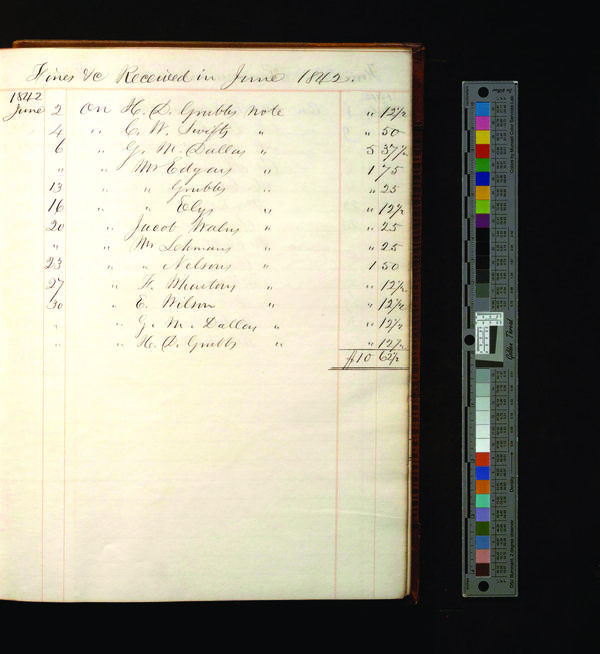 Fines &c Received in June 1842.
1842
June 2 On H. D. Grubbs Note " 12½
4 " C. W. Swifts " " 50
6 " G. M. Dallas " 5 37½
" " Mr Edgars " 1 75
13 " " Grubbs " " 25
16 " " Elys " " 12½
20 " Jacob Walns " " 25
" " Mr Lehmans " " 25
23 " " Nelsons " 1 50
27 " F. Whartons " " 12½
30 " E. Wilson " " 12½
" " G. M. Dallas " " 12½
" " H. D. Grubbs " " 12½
$10 62½
Golden Thread